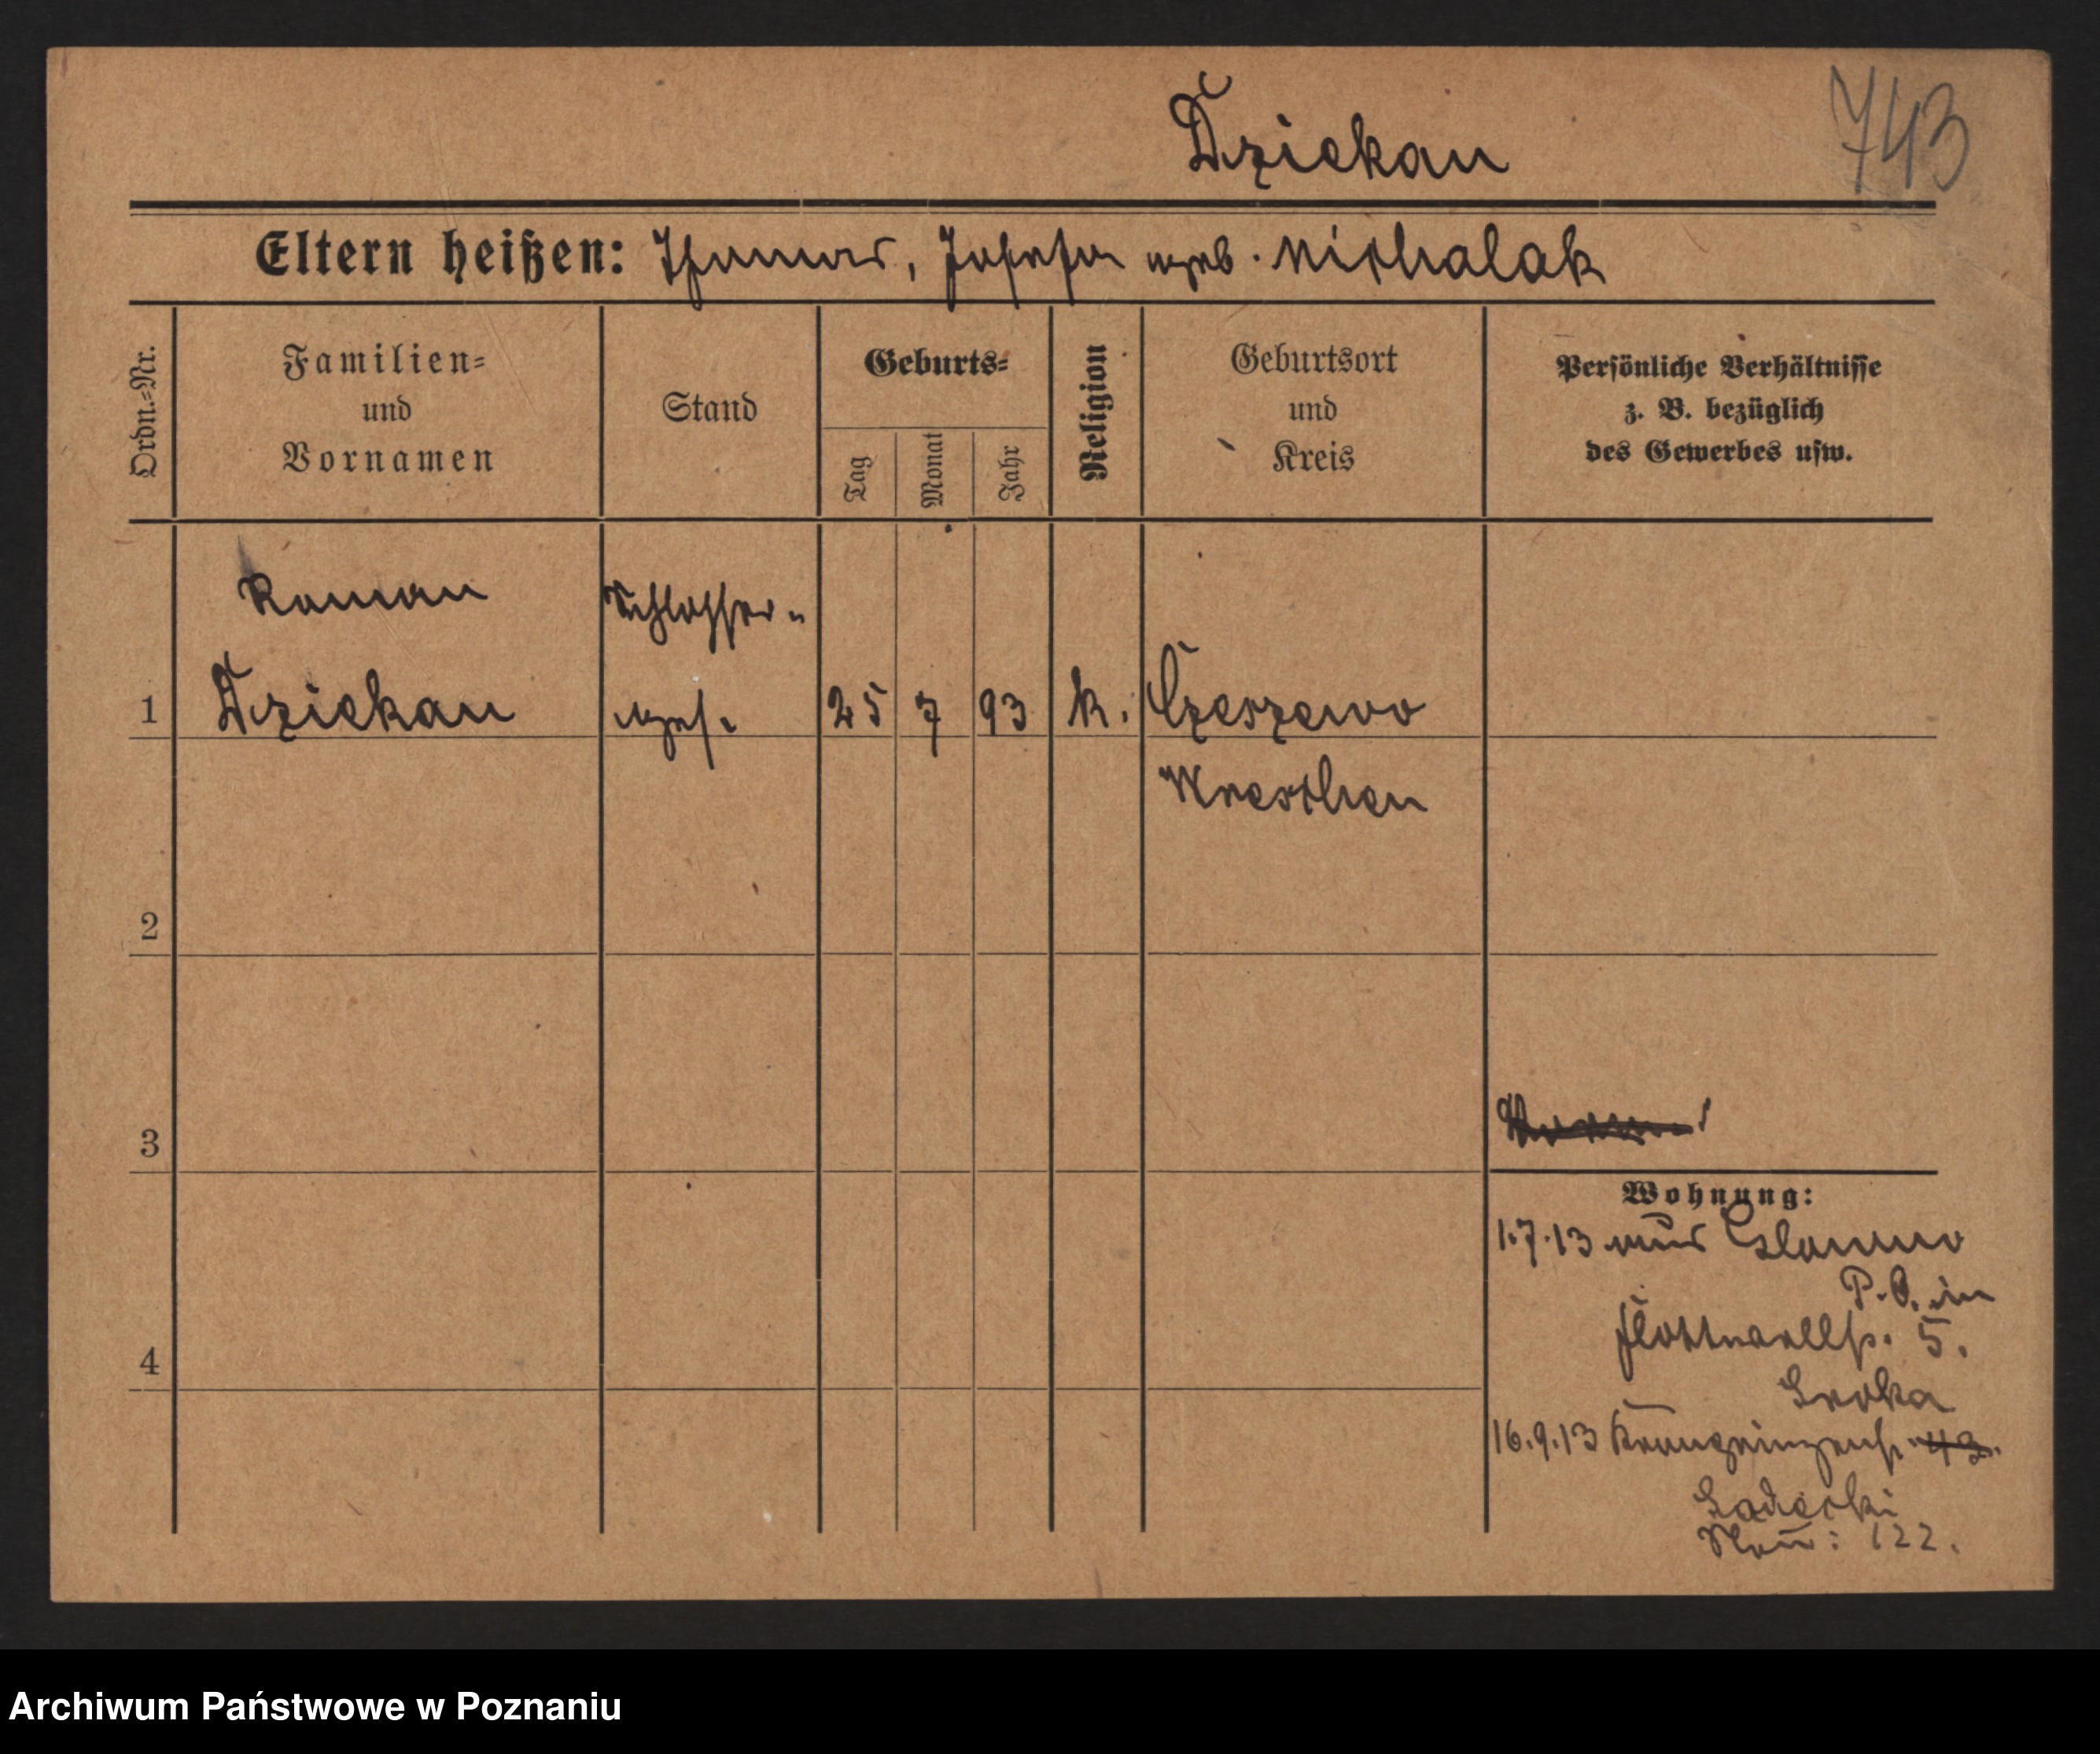 Dziekan
743
Eltern heißen: Thomas, Josefa geb. Michalak
Ordn.-Nr.
Familien-
und
Vornamen
Stand
Geburts-
Tag
Monat
Jahr
Religion
Geburtsort
und
Kreis
Persönliche Verhältnisse
z. B. bezüglich
des Gewerbes usw.
Roman
Schlosser-
1 Dziekan ges. 25 7 93 k. Czeszewo
Wreschen
2
3
Wohnung:
1.7.13 aus
P. O. in
Flottwellst. 5.
Sroka
4
16.9.13 Kronprinzenst. 43.
Sadecki
Neu: 122.
Archiwum Państwowe w Poznaniu